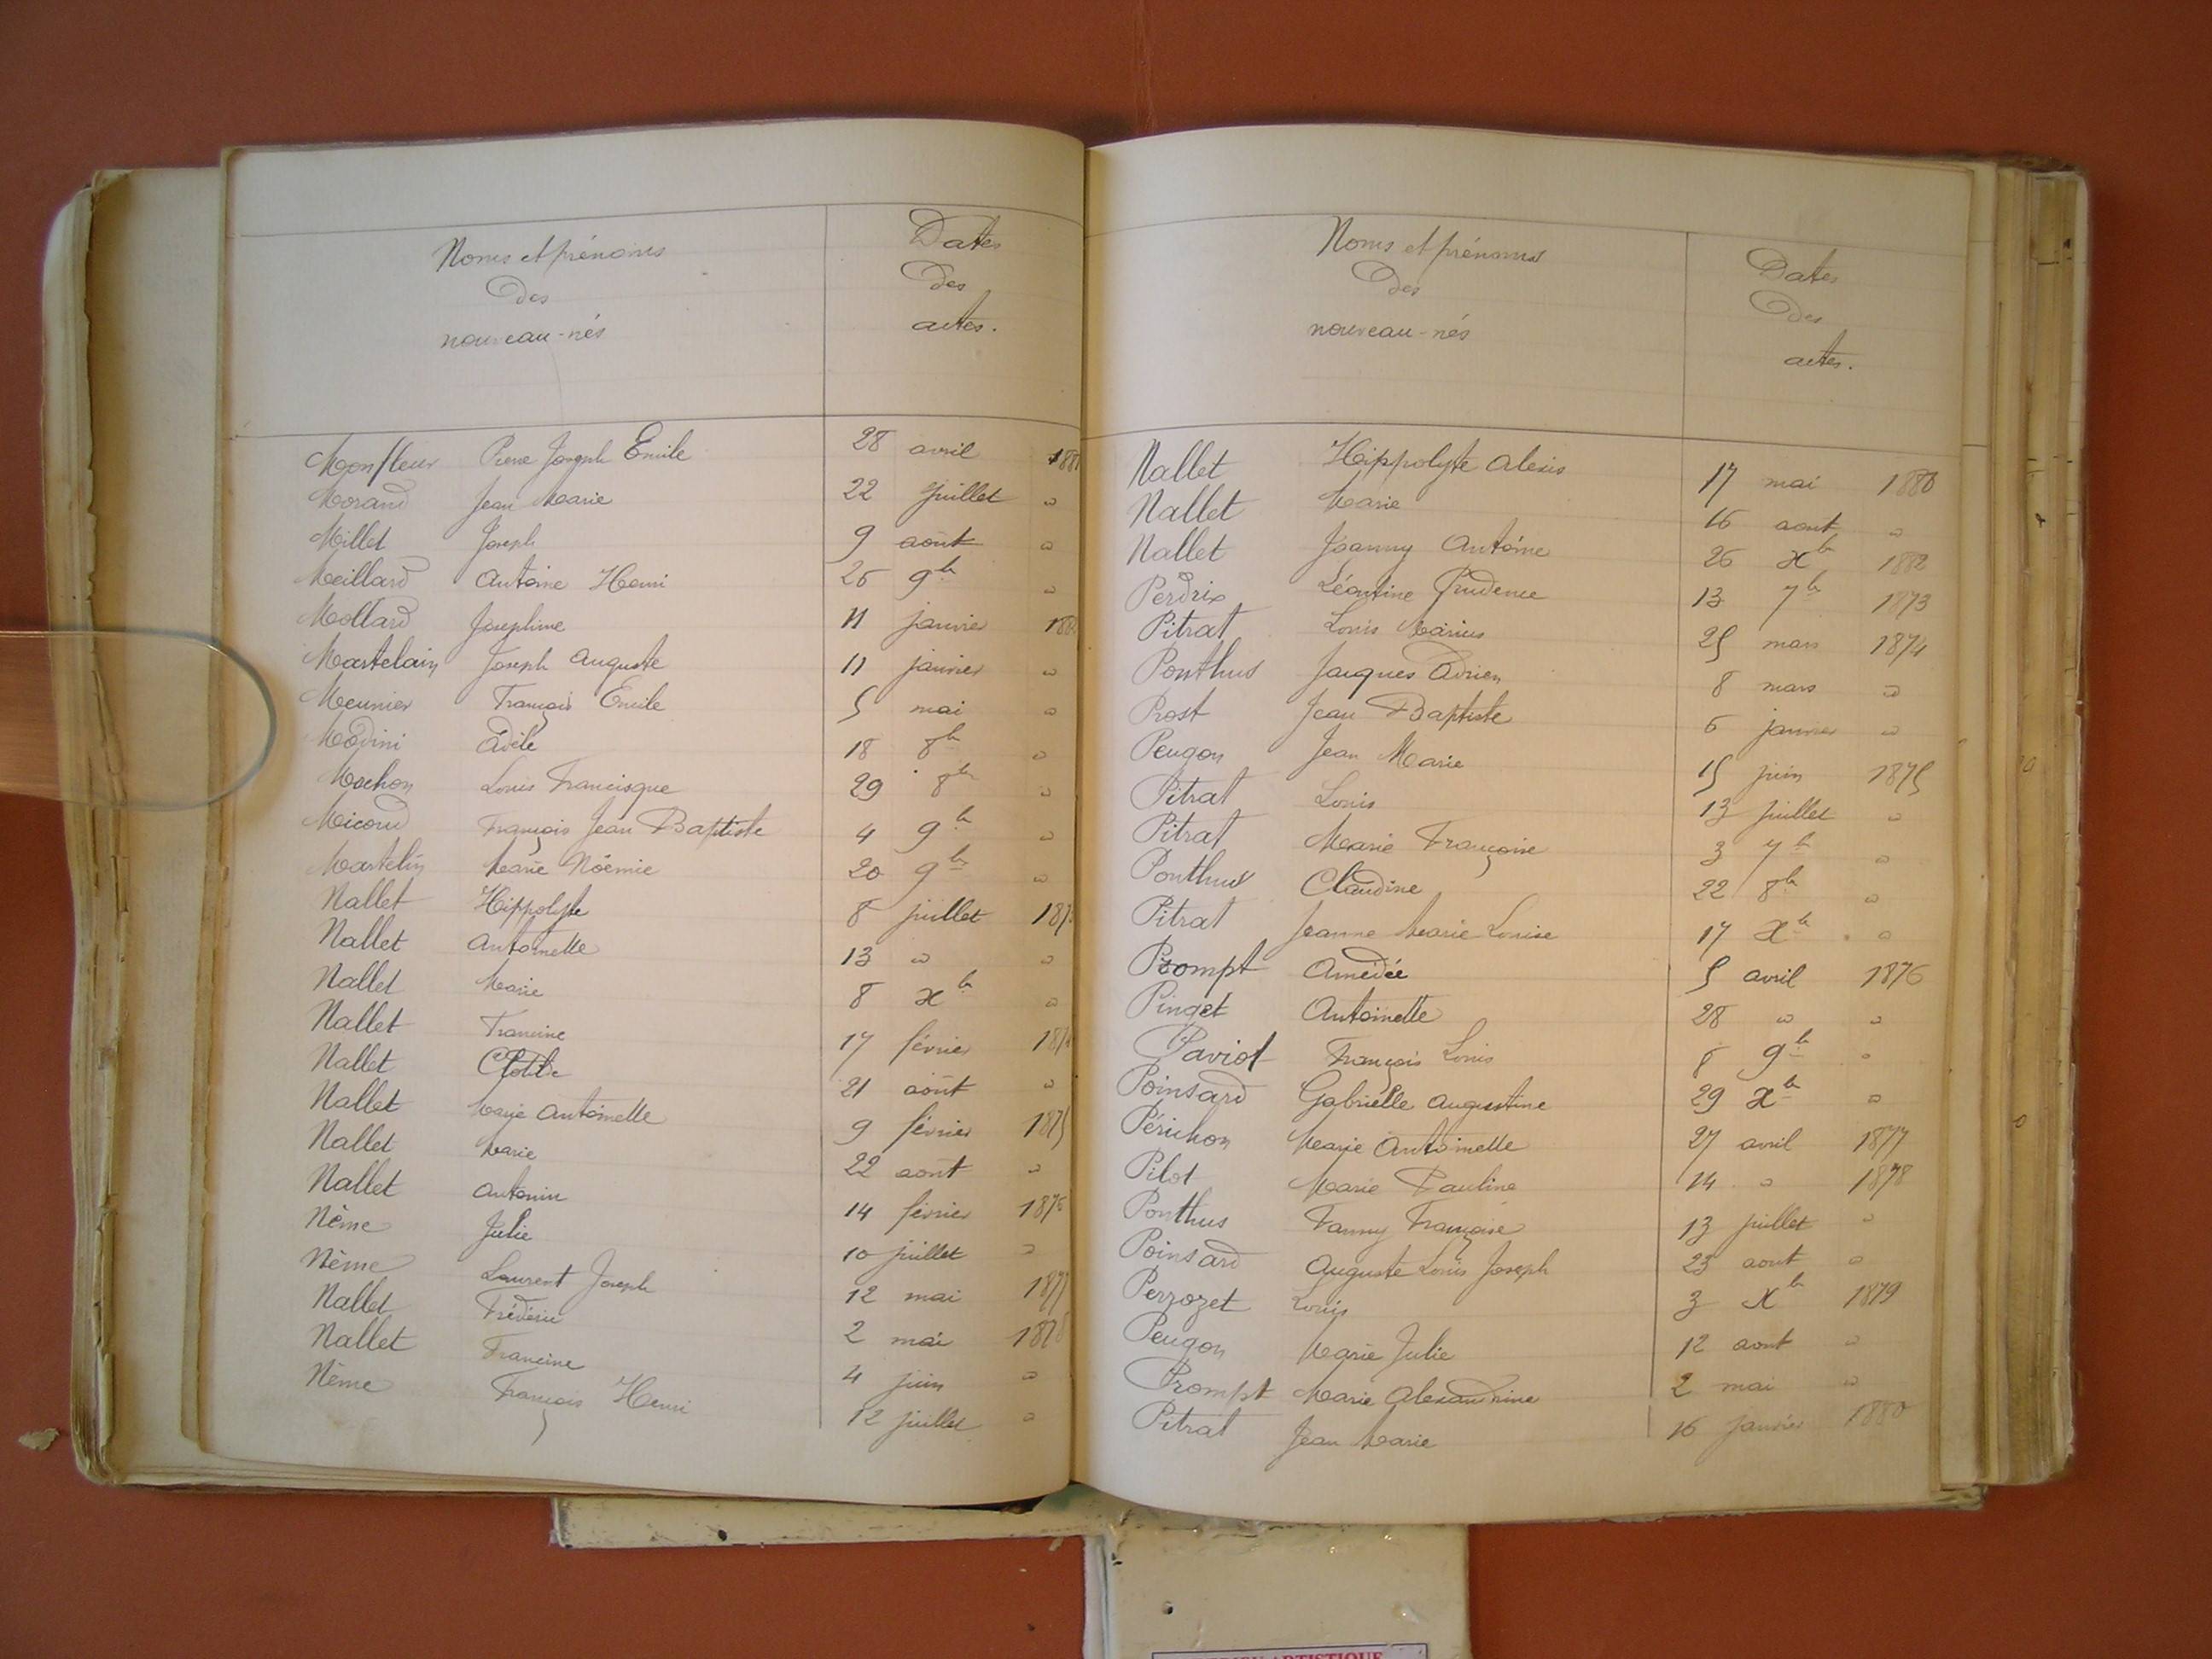 Noms et prénoms
des
nouveau-nés
Dates
des
actes.
Monfleur Pierre Joseph Emile 28 avril 188
Morand Jean Marie 22 juillet "
Millet Joseph 9 août "
Meillard Antoine Henri 26 9bre "
Mollard Joséphine 11 janvier 188
Martelain Joseph Auguste 11 janvier "
Meunier François Emile 5 mai "
Modini Adèle 18 8bre "
Mochon Louis Francisque 29 8bre "
Micoud François Jean Baptiste 4 9bre "
Martelin Marie Noémie 20 9bre "
Nallet Hippolyte 8 juillet 187
Nallet Antoinette 13 " "
Nallet Marie 8 xbre "
Nallet Francine 17 février 187
Nallet Clotilde 21 août "
Nallet Marie Antoinette 9 février 1875
Nallet Marie 22 août "
Nallet Antonin 14 février 1876
Nème Julie 10 juillet "
Nème Laurent Joseph 12 mai 1877
Nallet Frédéric 2 mai 1878
Nallet Francine 4 juin "
Nème François Henri 12 juillet "
Noms et prénoms
des
nouveau-nés
Dates
des
actes.
Nallet Hippolyte Alexis 17 mai 1880
Nallet Marie 16 aout "
Nallet Joanny Antoine 26 xbre 1882
Perdrix Léontine Prudence 13 7bre 1873
Pitrat Louis Marius 25 mars 1874
Ponthus Jacques Adrien 8 mars "
Prost Jean Baptiste 6 janvier "
Peugon Jean Marie 15 juin 1875
Pitrat Louis 13 juillet "
Pitrat Marie Françoise 3 7bre "
Ponthus Claudine 22 8bre "
Pitrat Jeanne Marie Louise 17 xbre "
Prompt Amédée 5 avril 1876
Pinget Antoinette 28 " "
Paviot François Louis 8 9bre "
Poinsard Gabrielle Augustine 29 xbre "
Périchon Marie Antoinette 27 avril 1877
Pilot Marie Pauline 14 " 1878
Ponthus Fanny Françoise 13 juillet "
Poinsard Auguste Louis Joseph 23 aout "
Perrozet Louis 3 xbre 1879
Peugon Marie Julie 12 aout "
Prompt Marie Alexandrine 2 mai "
Pitrat Jean Marie 16 janvier 1880